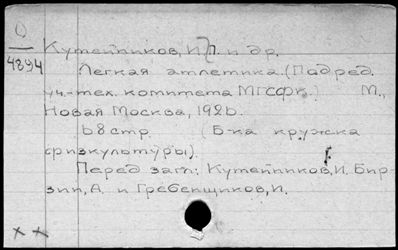 О
4894
Кутейников, И. П. и др.
Легкая атлетика. (Под ред.
уч.-тех. комитета МГСФК.) М.,
Новая Москва, 1926.
68 стр. (Б-ка кружка
физкультуры).
Перед загл: Кутейников, И. Бир-
зин, А. и Гребенщиков, И.